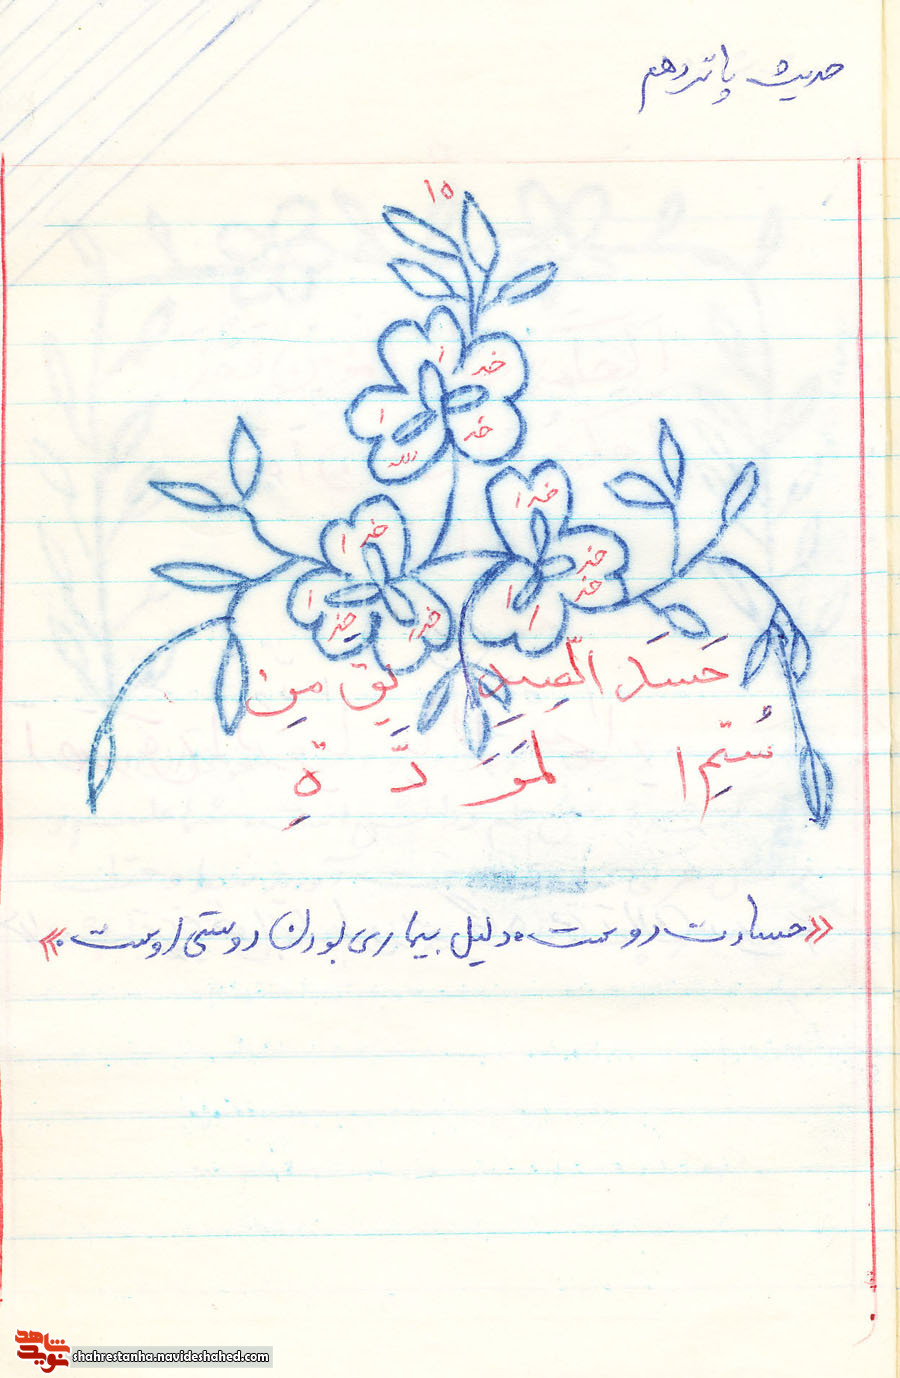 حدیث پانزدهم
۱۵
خدا
خدا
خدا
خدا
خدا
خدا
خدا
خدا
خدا
حَسَدَ الصِّدِیقِ مِن
سُقمِ المَوَدَّةِ
«حسادت دوست، دلیل بیماری بودن دوستی اوست.»
نوید شاهد
shahrestanha.navideshahed.com